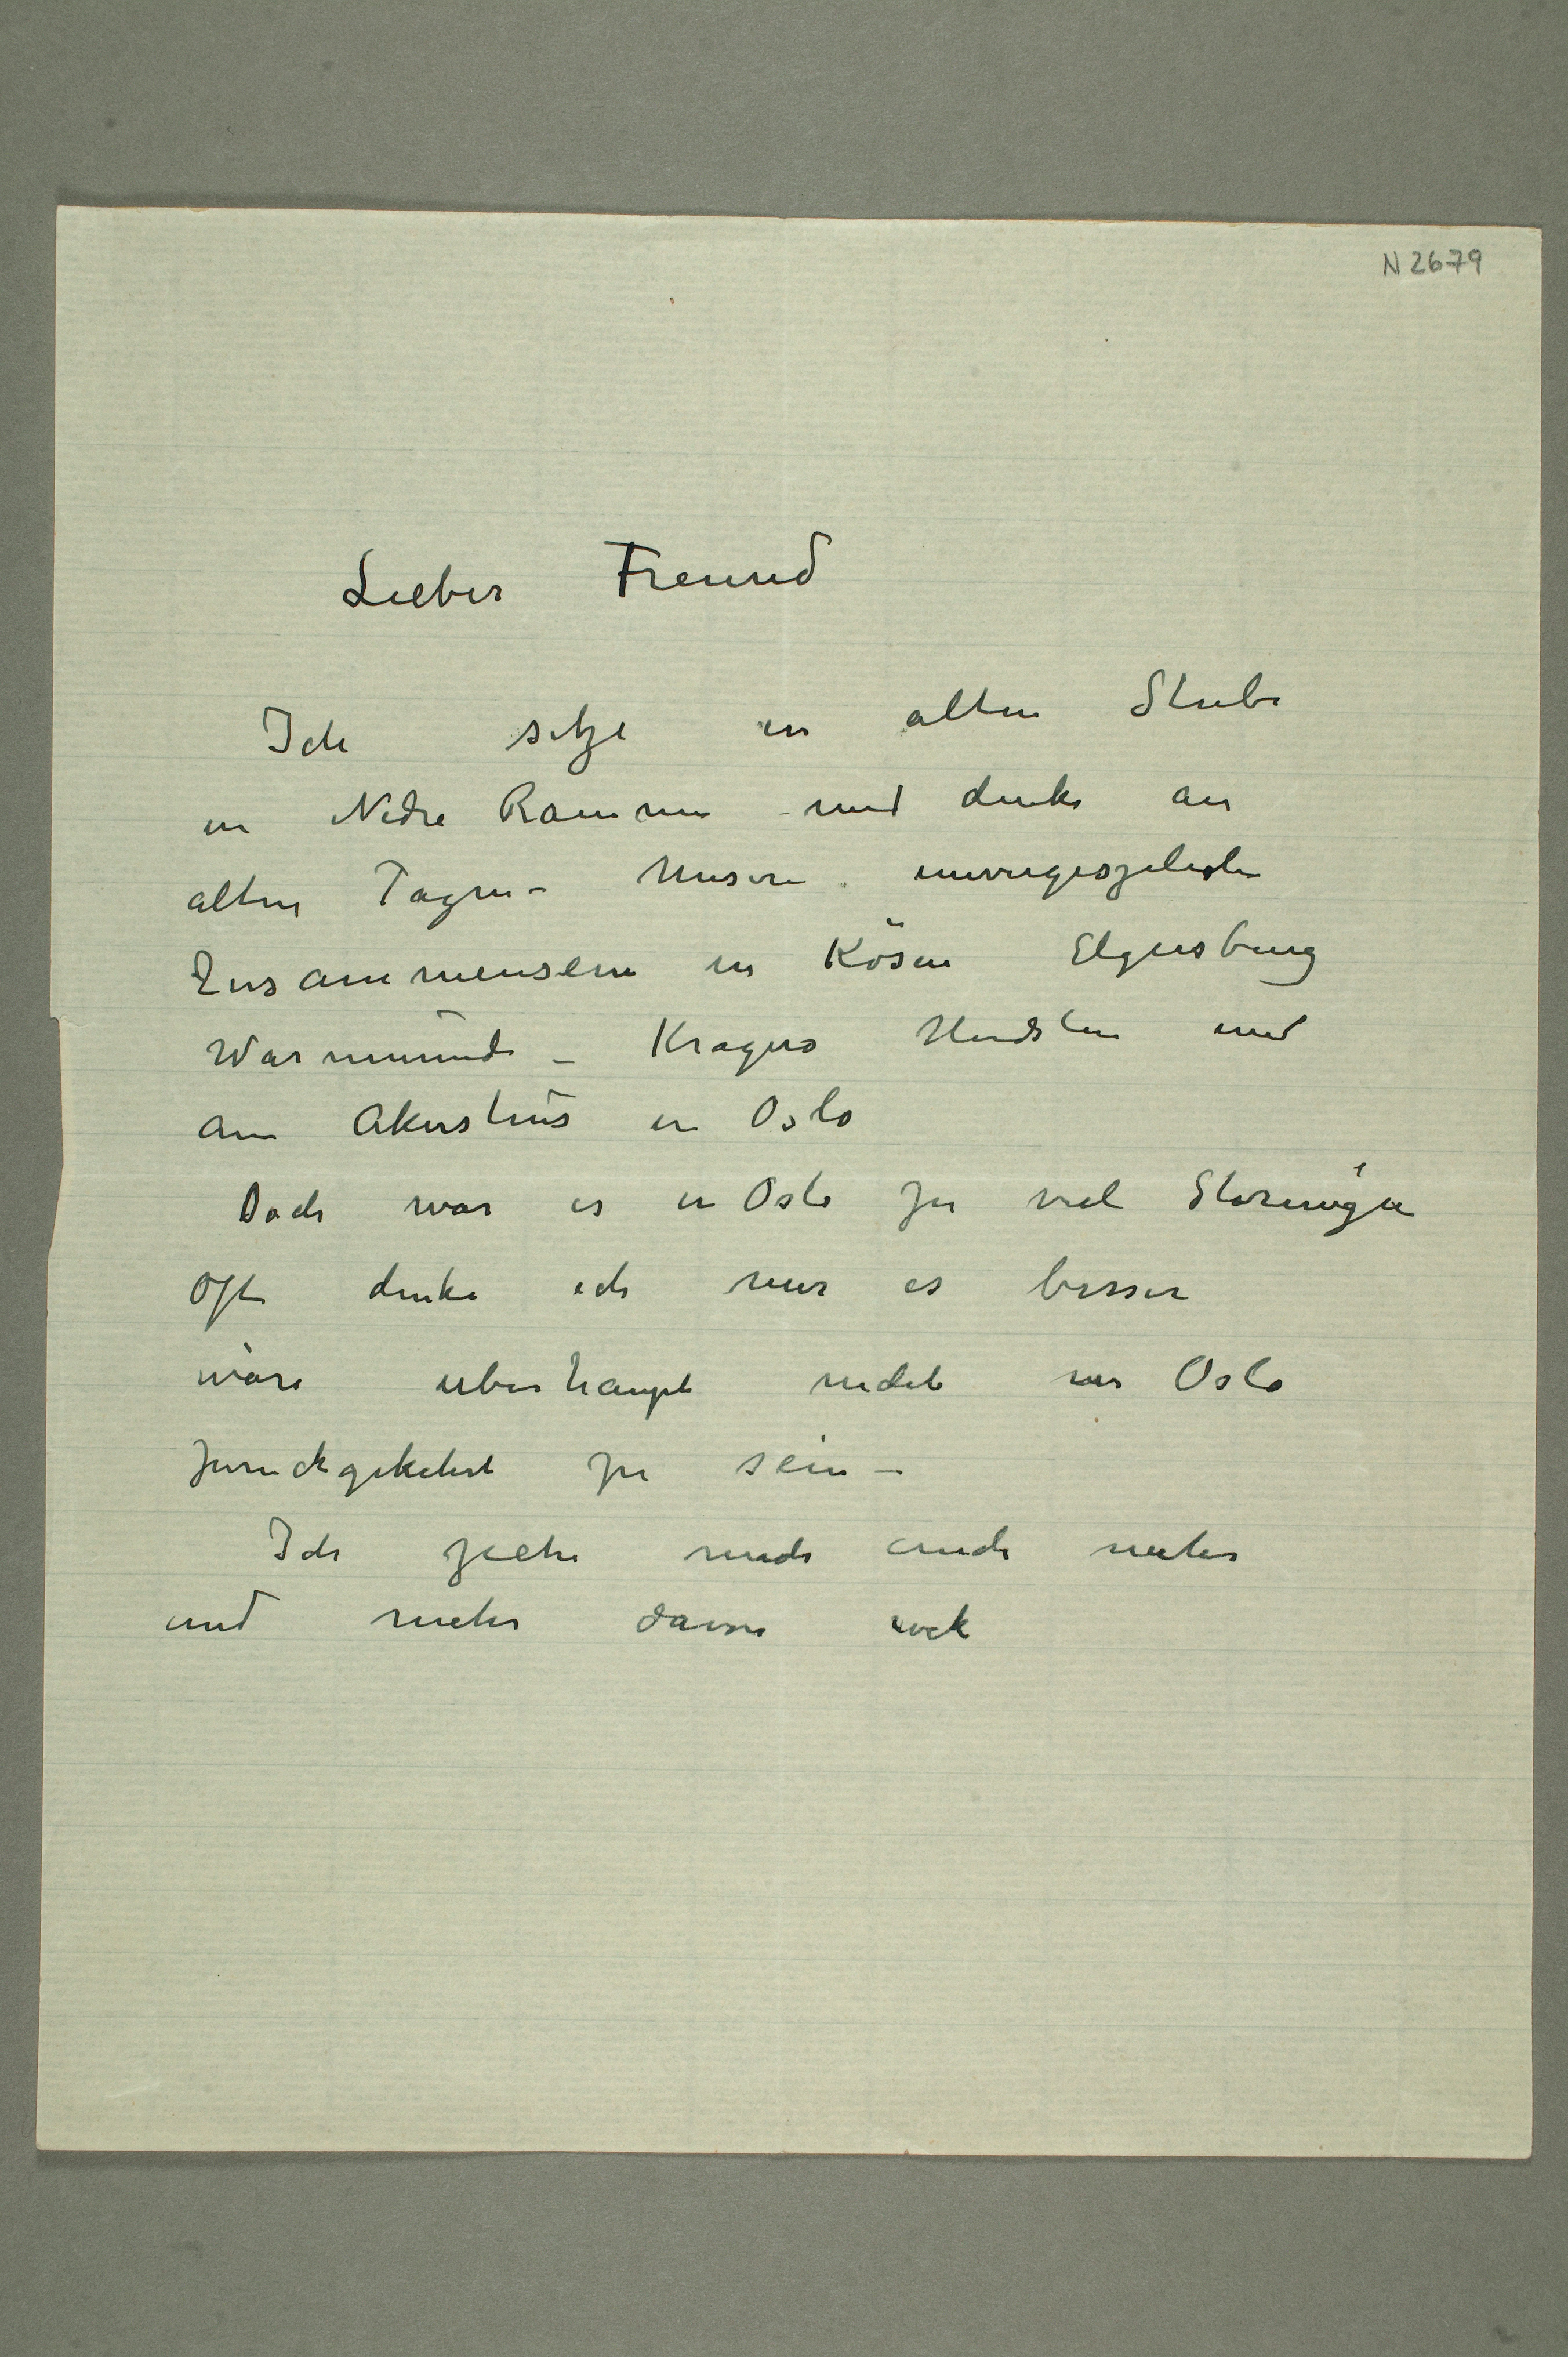 N 2679
Lieber Freund
Ich sitze in alten Stube
in Nedre Rammen und denke an
alten Tagen – Unsere unvergeszlichen
Zusammensein in Kösen Elgersburg
Warnemünde – Kragerø Hvidsten und
am Akershus in Oslo
Doch war es in Oslo zu viel Störungen
Oft denke ich mir es besser
wäre uberhaupt nicht in Oslo
zuruckgekehrt zu sein –
Ich ziehe mich auch mehr
und mehr davon wek